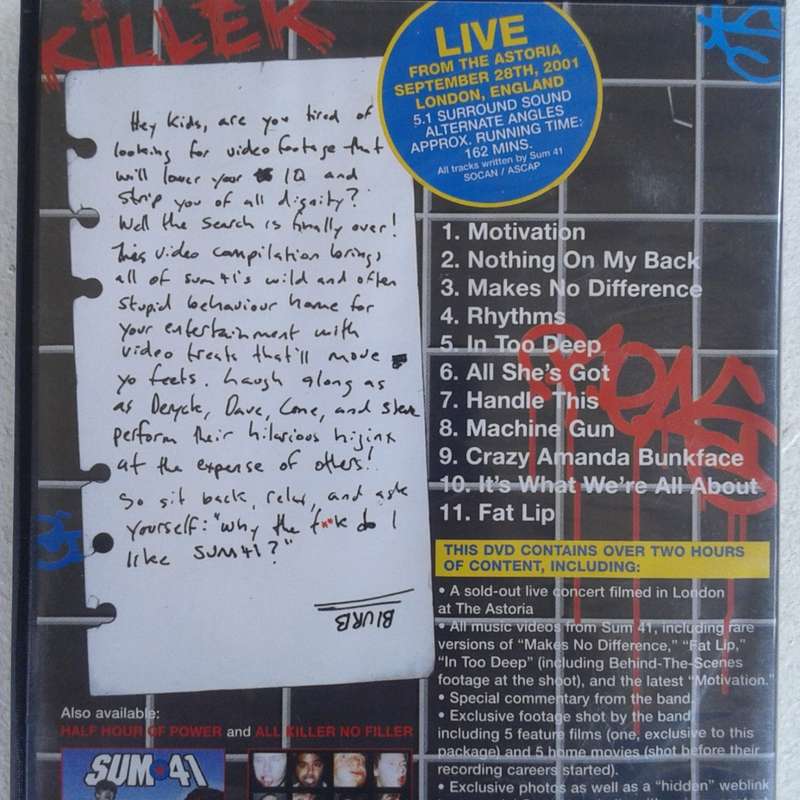 KILLER
LIVE
FROM THE ASTORIA
SEPTEMBER 28TH, 2001
LONDON, ENGLAND
5.1 SURROUND SOUND
ALTERNATE ANGLES
APPROX. RUNNING TIME:
162 MINS.
All tracks written by Sum 41
SOCAN / ASCAP
Hey Kids, are you tired of
looking for video footage that
will lower your IQ and
strip you of all dignity?
Well the search is finally over!
This video compilation brings
all of sum 41's wild and often
stupid behaviour home for
your entertainment with
video treats that'll move
yo feets. Laugh along as
as Deryck, Dave, Cone, and steve
perform their hilarious hijinx
at the expense of others!
So sit back, relax, and ask
yourself: "why the f**k do I
like SUM41?"
BLURB
1. Motivation
2. Nothing On My Back
3. Makes No Difference
4. Rhythms
5. In Too Deep
6. All She's Got
7. Handle This
8. Machine Gun
9. Crazy Amanda Bunkface
10. It's What We're All About
11. Fat Lip
THIS DVD CONTAINS OVER TWO HOURS
OF CONTENT, INCLUDING:
• A sold-out live concert filmed in London
at The Astoria
• All music videos from Sum 41, including rare
versions of "Makes No Difference," "Fat Lip,"
"In Too Deep" (including Behind-The-Scenes
footage at the shoot), and the latest "Motivation."
• Special commentary from the band.
• Exclusive footage shot by the band
including 5 feature films (one, exclusive to this
package) and 5 home movies (shot before their
recording careers started).
• Exclusive photos as well as a "hidden" weblink
Also available:
HALF HOUR OF POWER and ALL KILLER NO FILLER
SUM 41